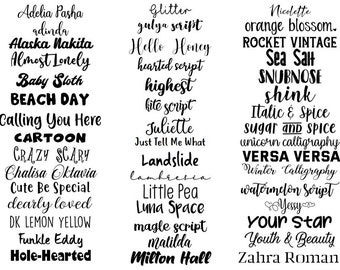 Adelia Pasha
adinda
Alaska Nakila
Almost Lonely
Baby Sloth
BEACH DAY
Calling You Here
CARTOON
CRAZY SCARY
Chalisa Oktavia
Cute Be Special
dearly loved
DK LEMON YELLOW
Funkle Eddy
Hole-Hearted
Glitter
gulye script
Hello Honey
hearted script
highest
kite script
Juliette
Just Tell Me What
Landslide
lambresia
Little Pea
Luna Space
magle script
matilda
Milton Hall
Nicolette
orange blossom.
ROCKET VINTAGE
Sea Salt
SNUBNOSE
shink
Italic & Spice
sugar and spice
unicorn calligraphy
VERSA VERSA
Winter Calligraphy
watermelon script
Yessy
Your Star
Youth & Beauty
Zahra Roman